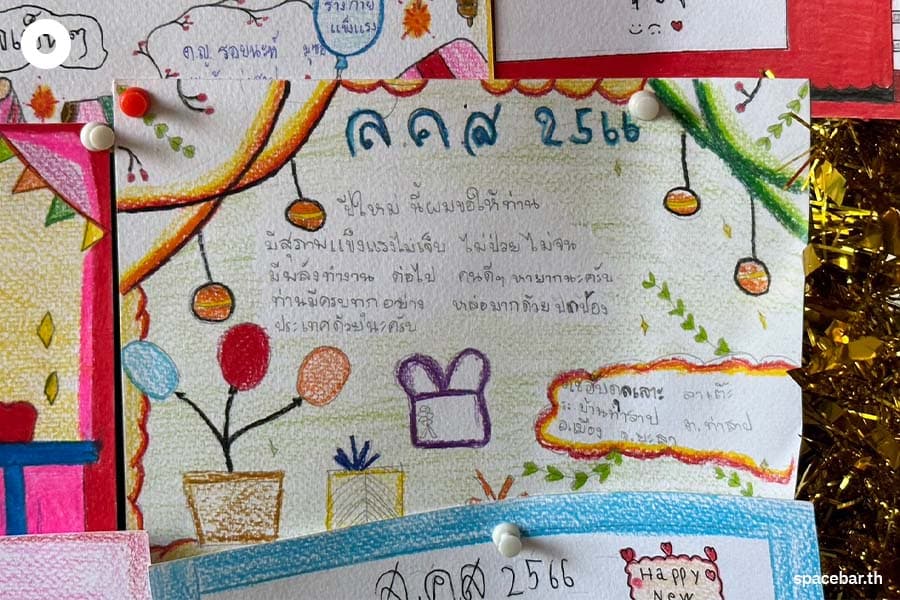 ร่างกาย
แข็งแรง
ด.ญ. รอยนะห์ มูซอ
ส ค ส 2566
ปีใหม่ นี้ผมขอให้ท่าน
มีสุภาพแข็งแรงไม่เจ็บ ไม่ป่วย ไม่จน
มีพลังทำงาน ต่อไป คนดีๆ หายากนะครับ
ท่านมีครบทุก อย่าง หล่อมากด้วย ปกป้อง
ประเทศด้วยนะครับ
ลาเต๊ะ
บ้านท่าสาป ต.ท่าสาป
อ.เมือง จ.ยะลา
ส.ค.ส 2566
Happy
New
spacebar.th